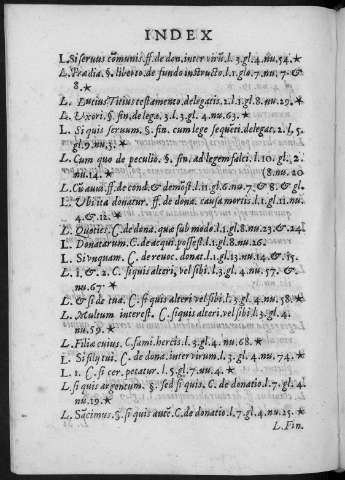 INDEX
L. Si seruus cõmunis. ff. de don. inter virũ. l. 3. gl. 4. nu. 54. *
L. Prædia. §. liberto. de fundo instructo. l. 1. glo. 7. nu. 7. &
8. *
L. Lucius Titius testamento. de legatis. 2. l. 1. gl. 8. nu. 29. *
L. Vxori. §. fin. de lega. 3. l. 3. gl. 4. nu. 63. *
L. Si quis seruum. §. fin. cum lege sequẽti. de legat. 2. l. 5.
gl. 9. nu. 3. *
L. Cum quo de peculio. §. fin. ad legem falci. l. 10. gl. 2.
nu. 14. * (8. nu. 20
L. Cũ auia. ff. de cond. & demõst. l. 11. gl. 6. nu. 7. & 8. & gl.
L. Vbi ita donatur. ff. de dona. causa mortis. l. 1. gl. 11. nu.
4. & 12. *
L. Quoties. C. de dona. quæ sub modo. l. 1. gl. 8. nu. 23. & 24.
L. Donatarum. C. de acqui. possess. l. 1. gl. 8. nu. 26.
L. Si vnquam. C. de reuoc. dona. l. 1. gl. 13. nu. 14. & 15.
L. 1. & 2. C. si quis alteri, vel sibi. l. 3. gl. 4. nu. 57. &
nu. 67. *
L. & si de tua. C. si quis alteri vel sibi. l. 3. gl. 4. nu. 58. *
L. Multum interest. C. si quis alteri, vel sibi. l. 3. gl. 4.
nu. 59. *
L. Filiæ cuius. C. fami. hercis. l. 3. gl. 4. nu. 68. *
L. Si
C. de dona. inter virum. l. 3. gl. 4. nu. 74. *
L. 1. C. si cer. petatur. l. 5. gl. 7. nu. 4. *
L. si quis argentum. §. sed si quis. C. de donatio. l. 7. gl. 4.
nu. 19. *
L. Sãcimus. §. si quis autẽ. C. de donatio. l. 7. gl. 4. nu. 25. *
L. Fin.